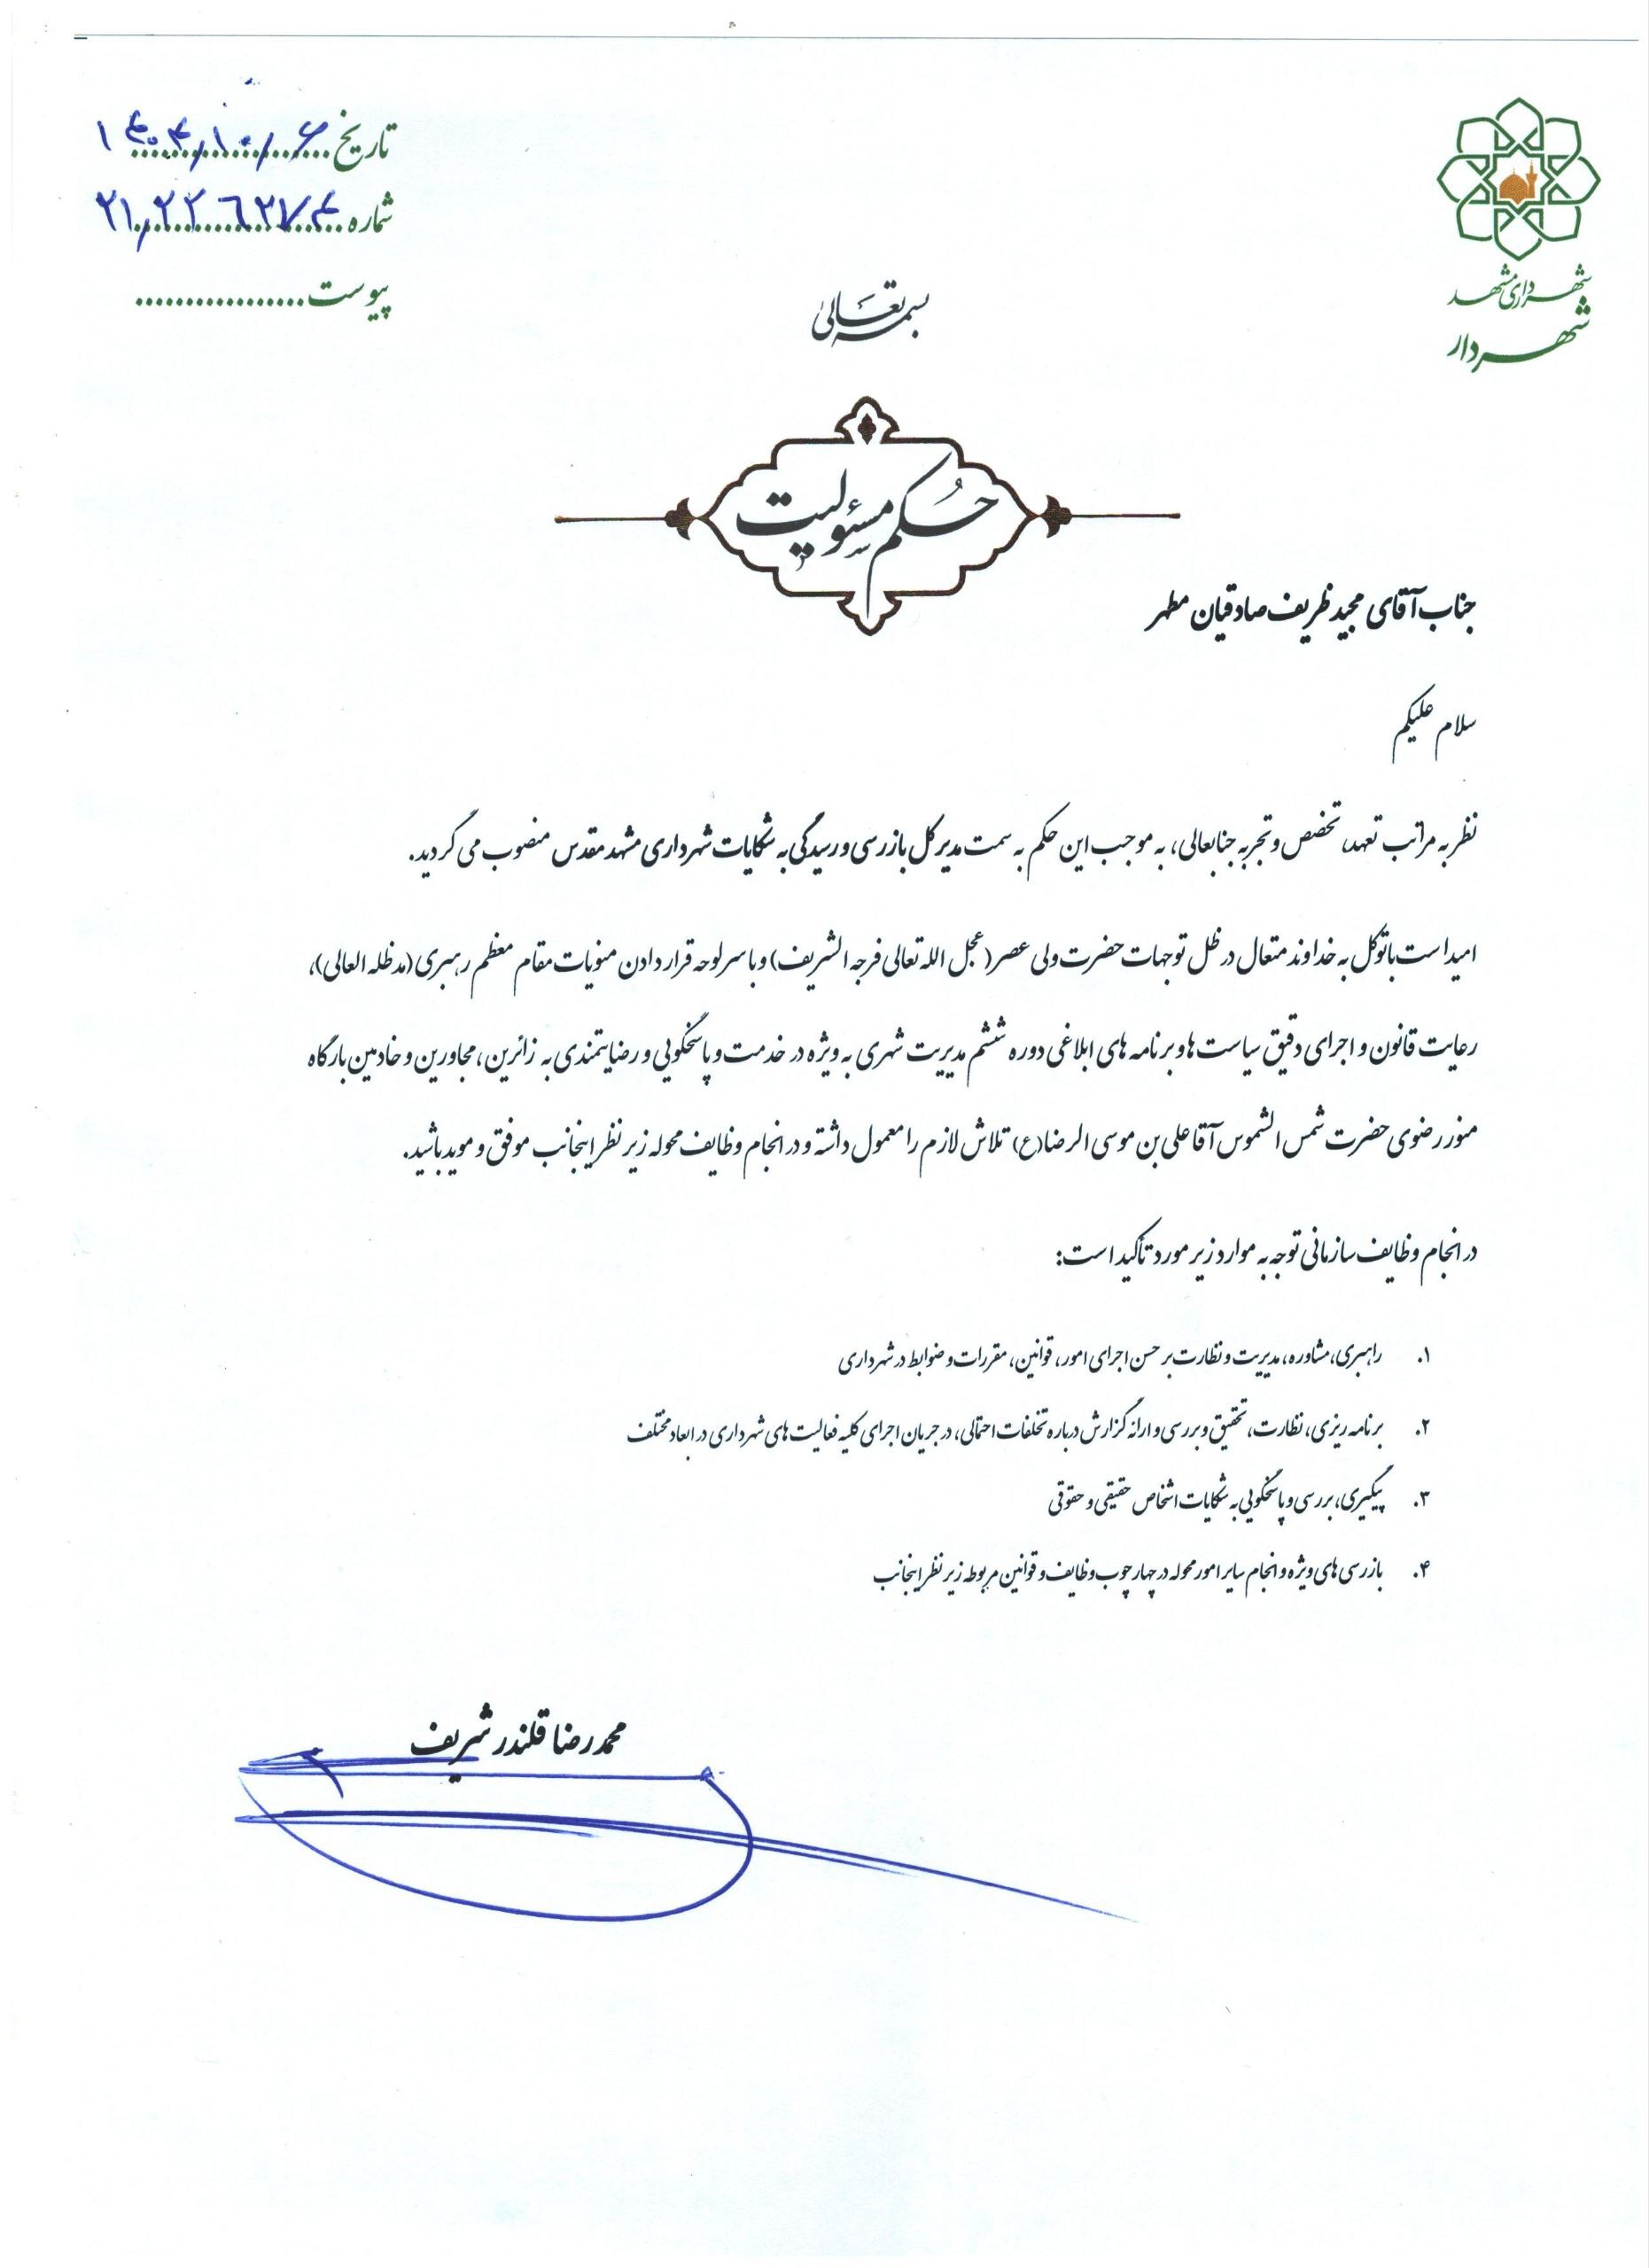 تاریخ ۱۴۰۴/۱۰/۶
شماره ۲۱/۲۲۶۲۷۴
پیوست
شهرداری مشهد
شهردار
بسمه تعالی
حکم مسئولیت
جناب آقای مجید ظریف صادقیان مطهر
سلام علیکم
نظر به مراتب تعهد، تخصص و تجربه جنابعالی، به موجب این حکم به سمت مدیرکل بازرسی و رسیدگی به شکایات شهرداری مشهد مقدس منصوب می گردید.
امید است با توکل به خداوند متعال در ظل توجهات حضرت ولی عصر (عجل الله تعالی فرجه الشریف) و با سرلوحه قرار دادن منویات مقام معظم رهبری (مدظله العالی)،
رعایت قانون و اجرای دقیق سیاست ها و برنامه های ابلاغی دوره ششم مدیریت شهری به ویژه در خدمت و پاسخگویی و رضایتمندی به زائرین، مجاورین و خادمین بارگاه
منور رضوی حضرت شمس الشموس آقا علی بن موسی الرضا (ع) تلاش لازم را معمول داشته و در انجام وظایف محوله زیر نظر اینجانب موفق و موید باشید.
در انجام وظایف سازمانی توجه به موارد زیر مورد تأکید است:
۱. راهبری، مشاوره، مدیریت و نظارت بر حسن اجرای امور، قوانین، مقررات و ضوابط در شهرداری
۲. برنامه ریزی، نظارت، تحقیق و بررسی و ارائه گزارش درباره تخلفات احتمالی، در جریان اجرای کلیه فعالیت های شهرداری در ابعاد مختلف
۳. پیگیری، بررسی و پاسخگویی به شکایات اشخاص حقیقی و حقوقی
۴. بازرسی های ویژه و انجام سایر امور محوله در چهارچوب وظایف و قوانین مربوطه زیر نظر اینجانب
محمدرضا قلندر شریف